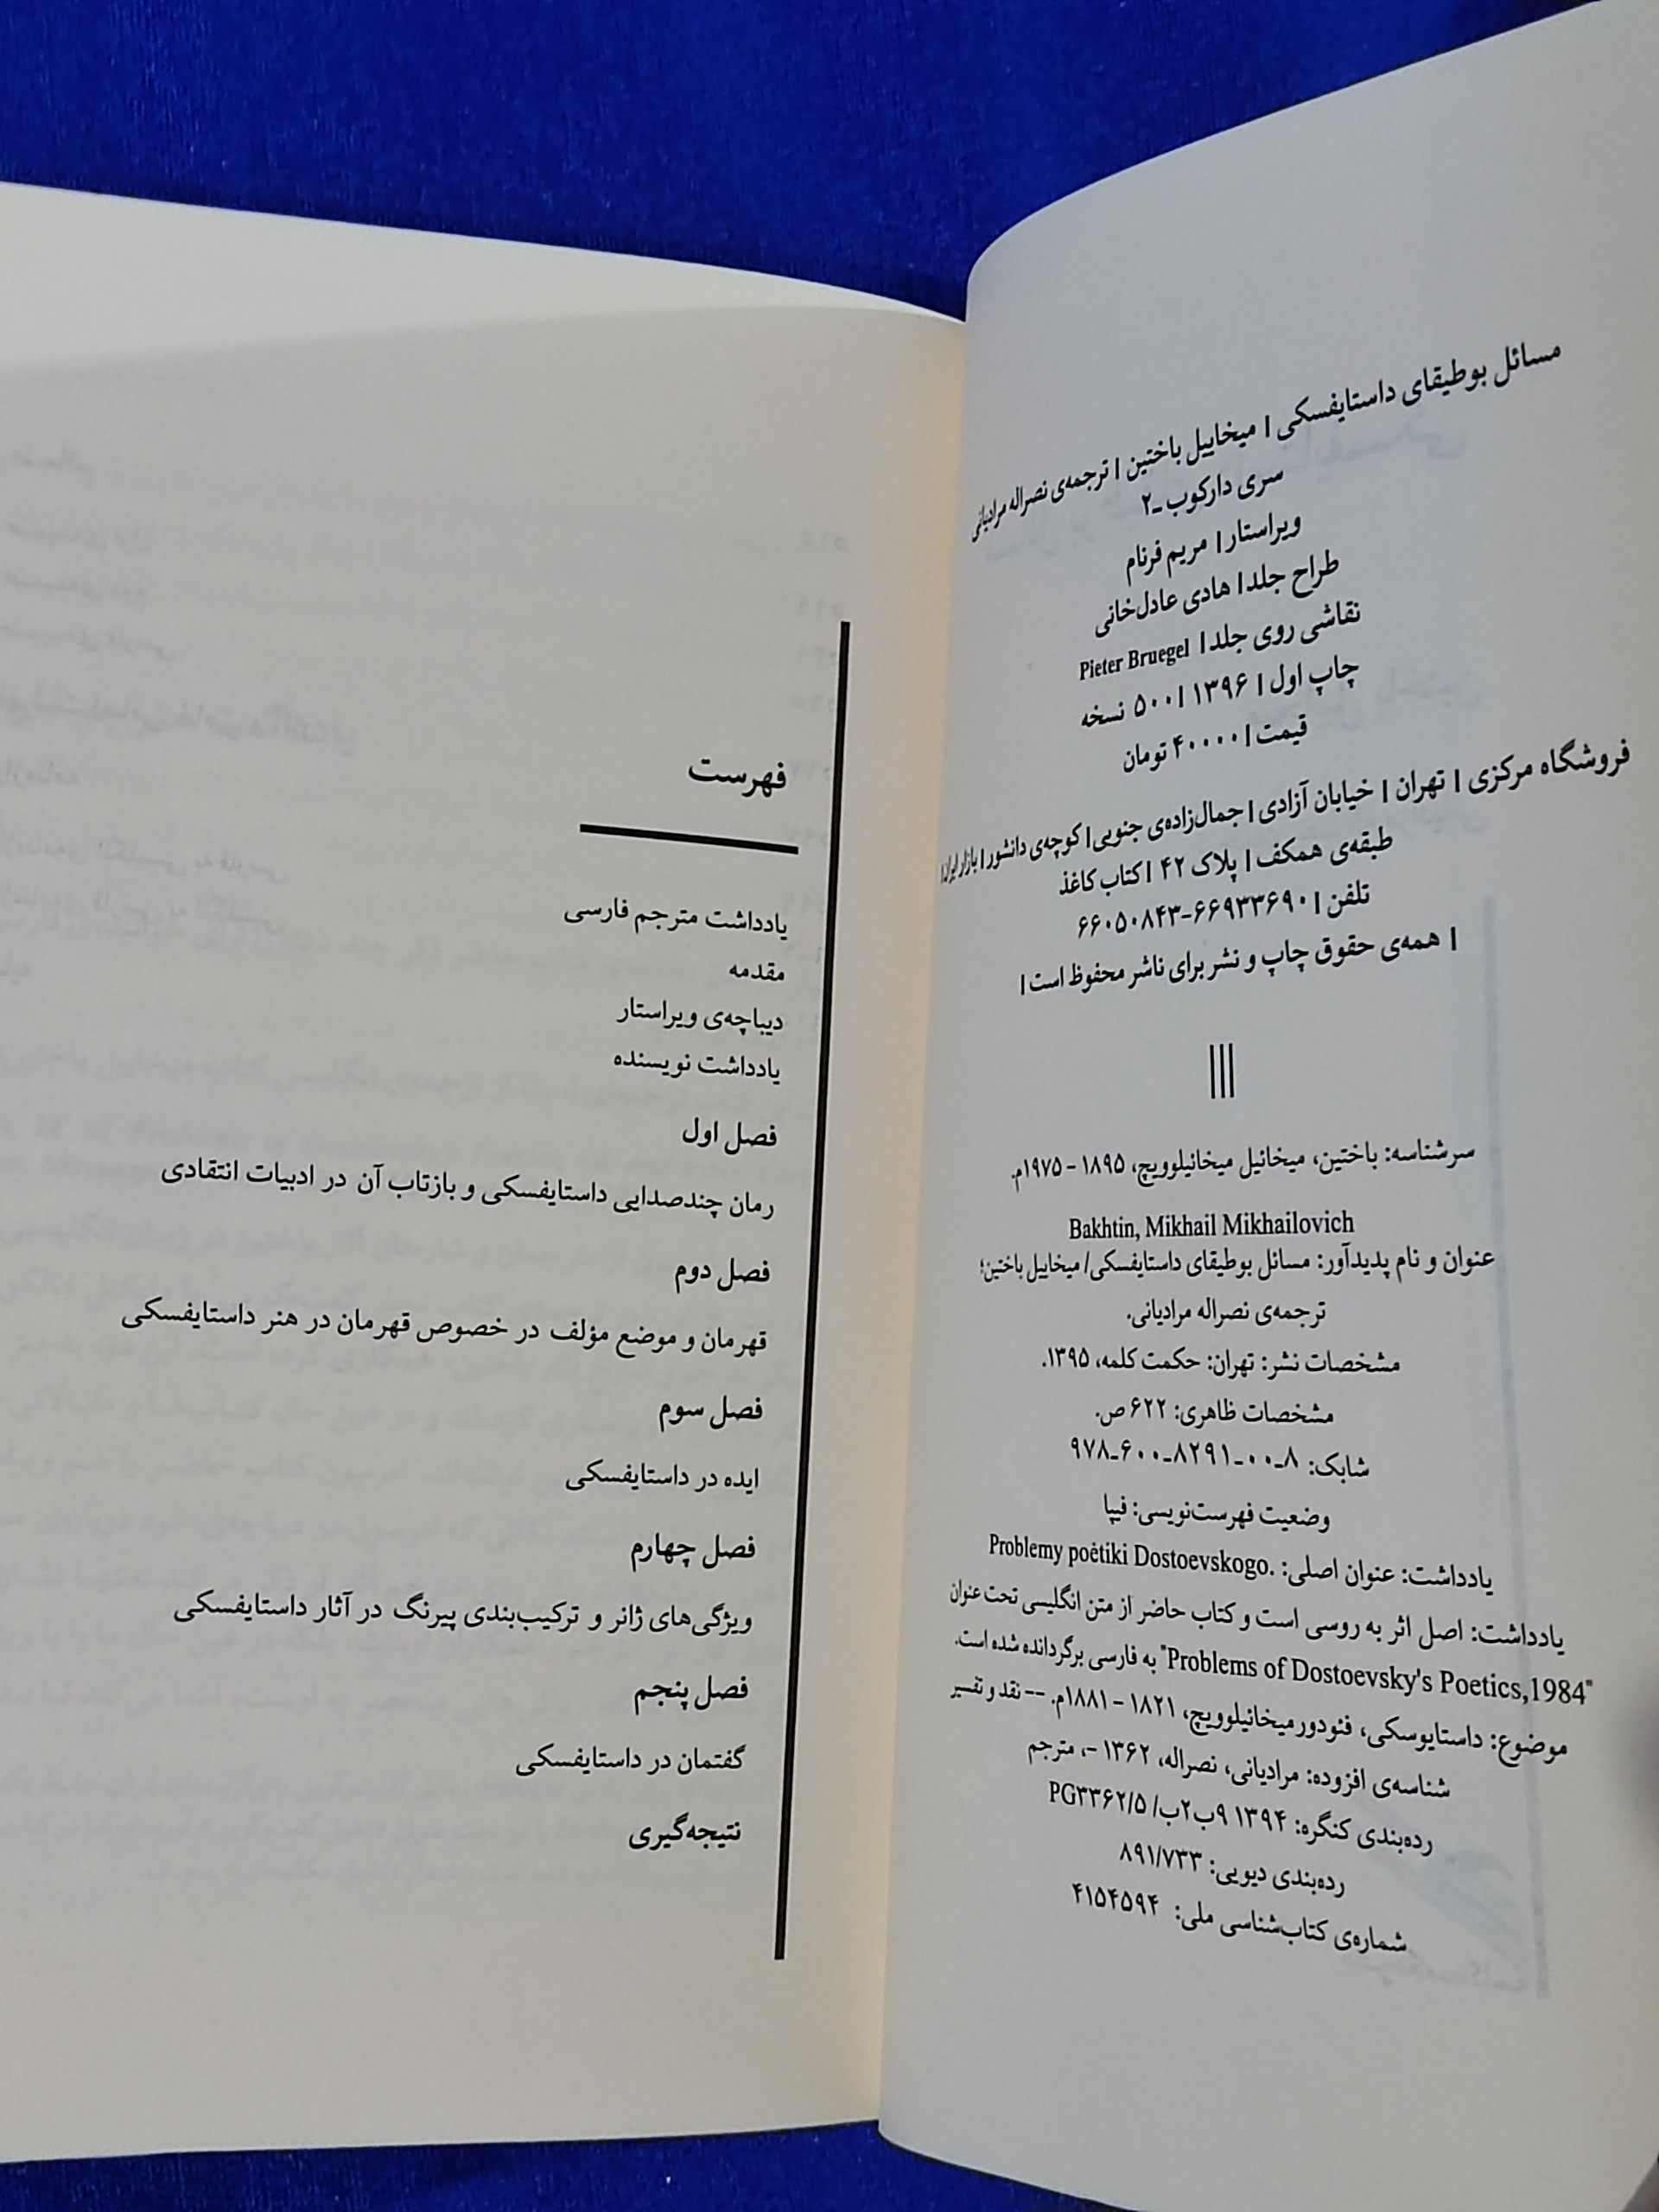 مسائل بوطیقای داستایفسکی | میخاییل باختین | ترجمه‌ی نصراله مرادیانی
سری دارکوب ـ۲
ویراستار | مریم فرنام
طراح جلد | هادی عادل‌خانی
نقاشی روی جلد | Pieter Bruegel
چاپ اول | ۱۳۹۶ | ۵۰۰ نسخه
قیمت | ۴۰۰۰۰ تومان
فروشگاه مرکزی | تهران | خیابان آزادی | جمال‌زاده‌ی جنوبی | کوچه‌ی دانشور | بازار ایران |
طبقه‌ی همکف | پلاک ۴۲ | کتاب کاغذ
تلفن | ۶۶۹۳۳۶۹۰-۶۶۰۵۰۸۴۳
| همه‌ی حقوق چاپ و نشر برای ناشر محفوظ است |
|||
سرشناسه: باختین، میخائیل میخائیلوویچ، ۱۸۹۵ - ۱۹۷۵م.
Bakhtin, Mikhail Mikhailovich
عنوان و نام پدیدآور: مسائل بوطیقای داستایفسکی/ میخاییل باختین؛
ترجمه‌ی نصراله مرادیانی.
مشخصات نشر: تهران: حکمت کلمه، ۱۳۹۵.
مشخصات ظاهری: ۶۲۲ ص.
شابک: ۸ـ۰۰ـ۸۲۹۱ـ۶۰۰ـ۹۷۸
وضعیت فهرست‌نویسی: فیپا
یادداشت: عنوان اصلی: Problemy poėtiki Dostoevskogo.
یادداشت: اصل اثر به روسی است و کتاب حاضر از متن انگلیسی تحت عنوان
"Problems of Dostoevsky's Poetics,1984" به فارسی برگردانده شده است.
موضوع: داستایوسکی، فئودورمیخائیلوویچ، ۱۸۲۱ - ۱۸۸۱م. -- نقد و تفسیر
شناسه‌ی افزوده: مرادیانی، نصراله، ۱۳۶۲ -، مترجم
رده‌بندی کنگره: ۱۳۹۴ ۹ب۲ب/ PG۳۳۶۲/۵
رده‌بندی دیویی: ۸۹۱/۷۳۳
شماره‌ی کتاب‌شناسی ملی: ۴۱۵۴۵۹۴
فهرست
یادداشت مترجم فارسی
مقدمه
دیباچه‌ی ویراستار
یادداشت نویسنده
فصل اول
رمان چندصدایی داستایفسکی و بازتاب آن در ادبیات انتقادی
فصل دوم
قهرمان و موضع مؤلف در خصوص قهرمان در هنر داستایفسکی
فصل سوم
ایده در داستایفسکی
فصل چهارم
ویژگی‌های ژانر و ترکیب‌بندی پیرنگ در آثار داستایفسکی
فصل پنجم
گفتمان در داستایفسکی
نتیجه‌گیری